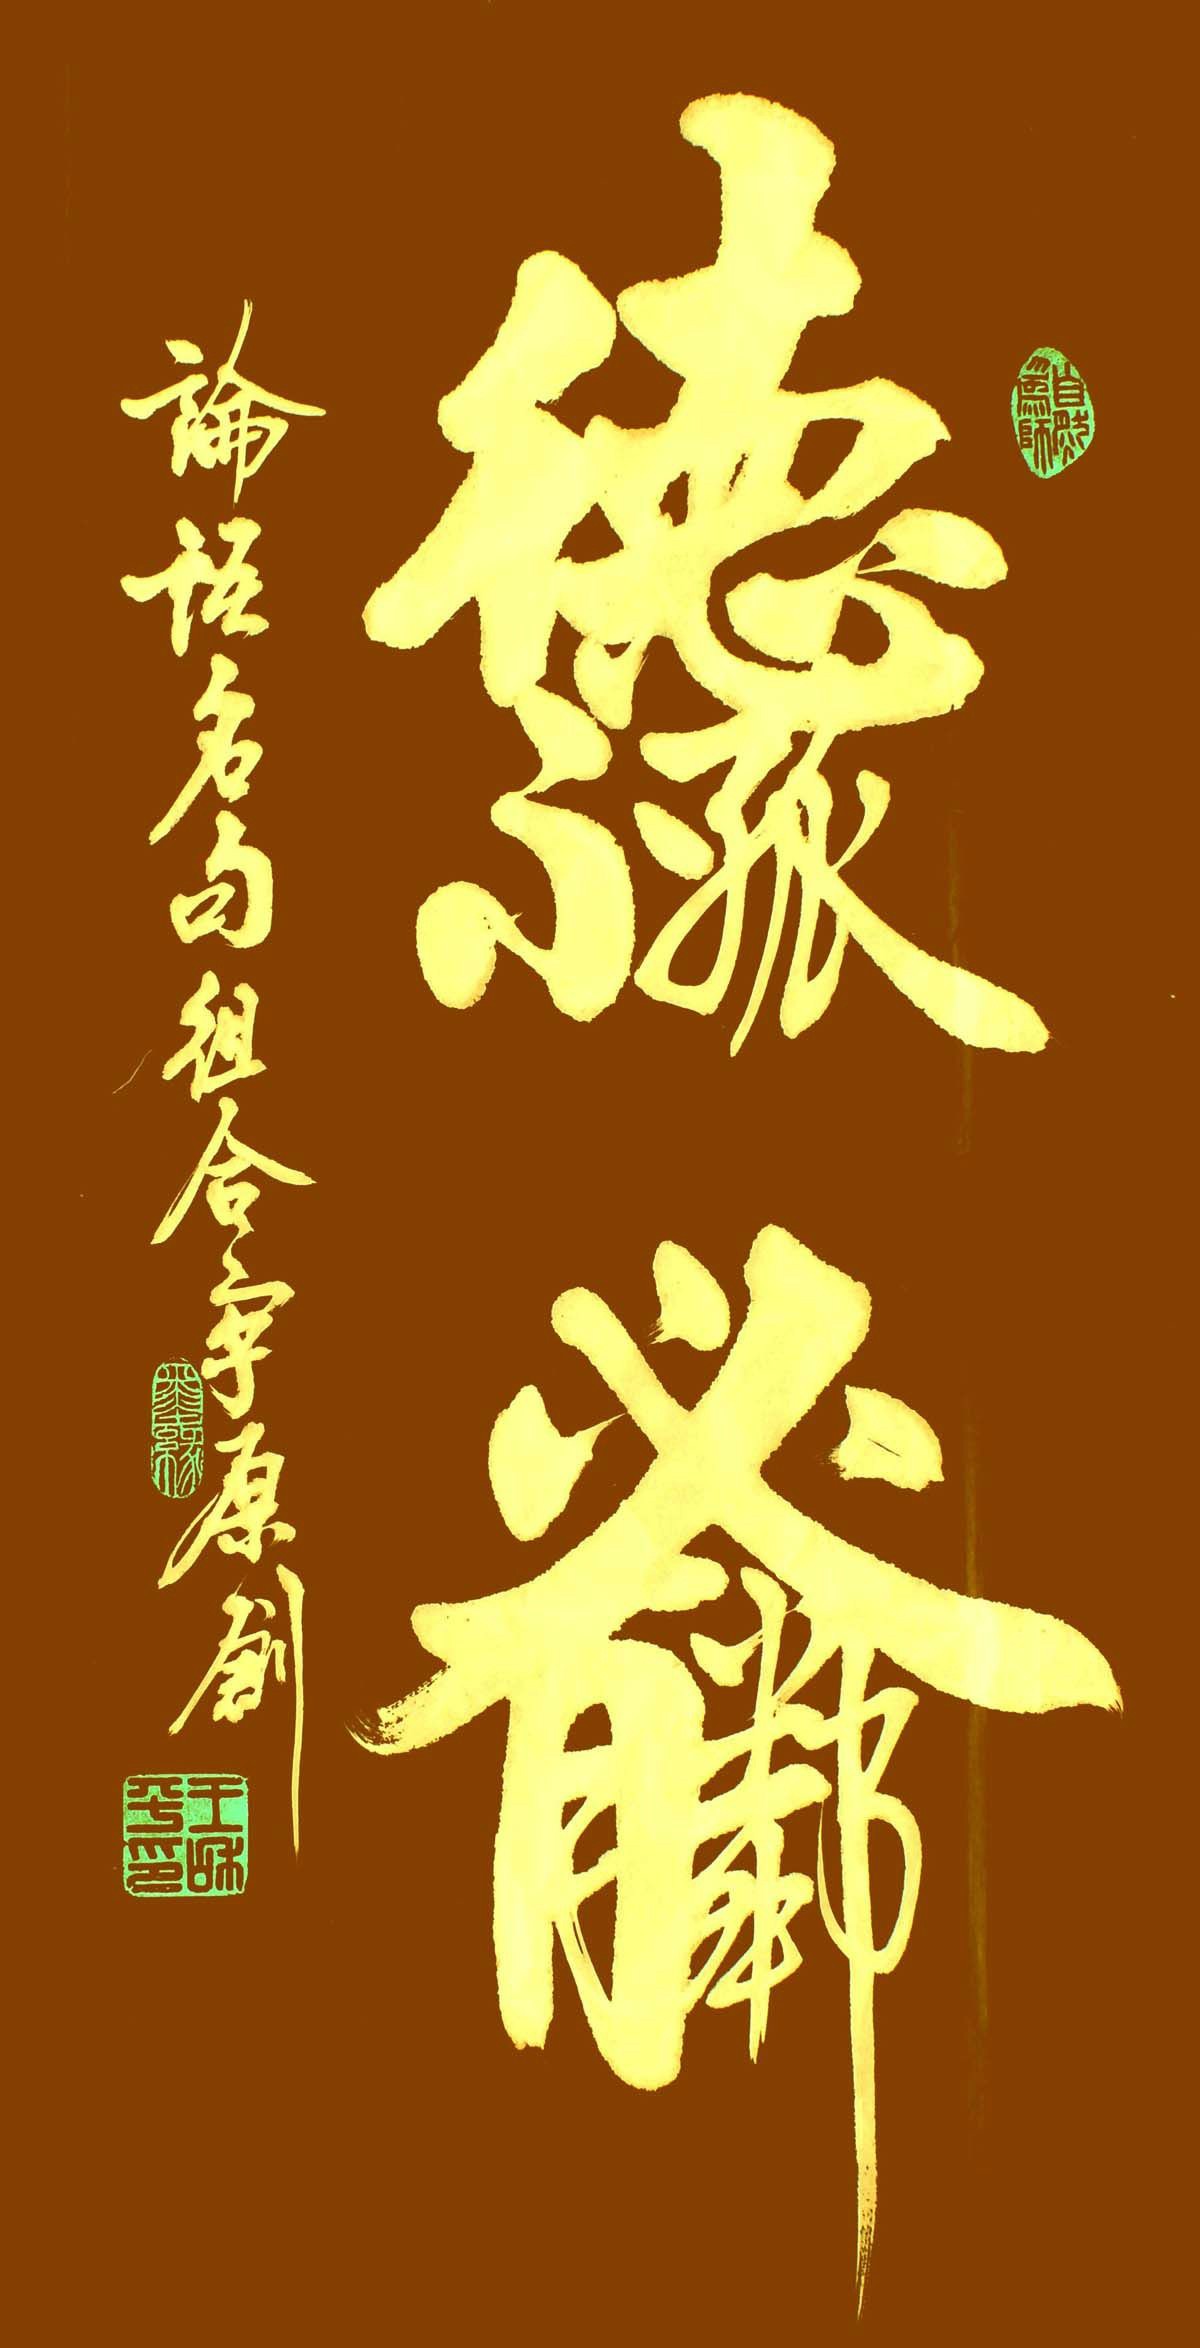 自然
爲師
德不孤
必有鄰
論語名句組合字原創
王和
平印